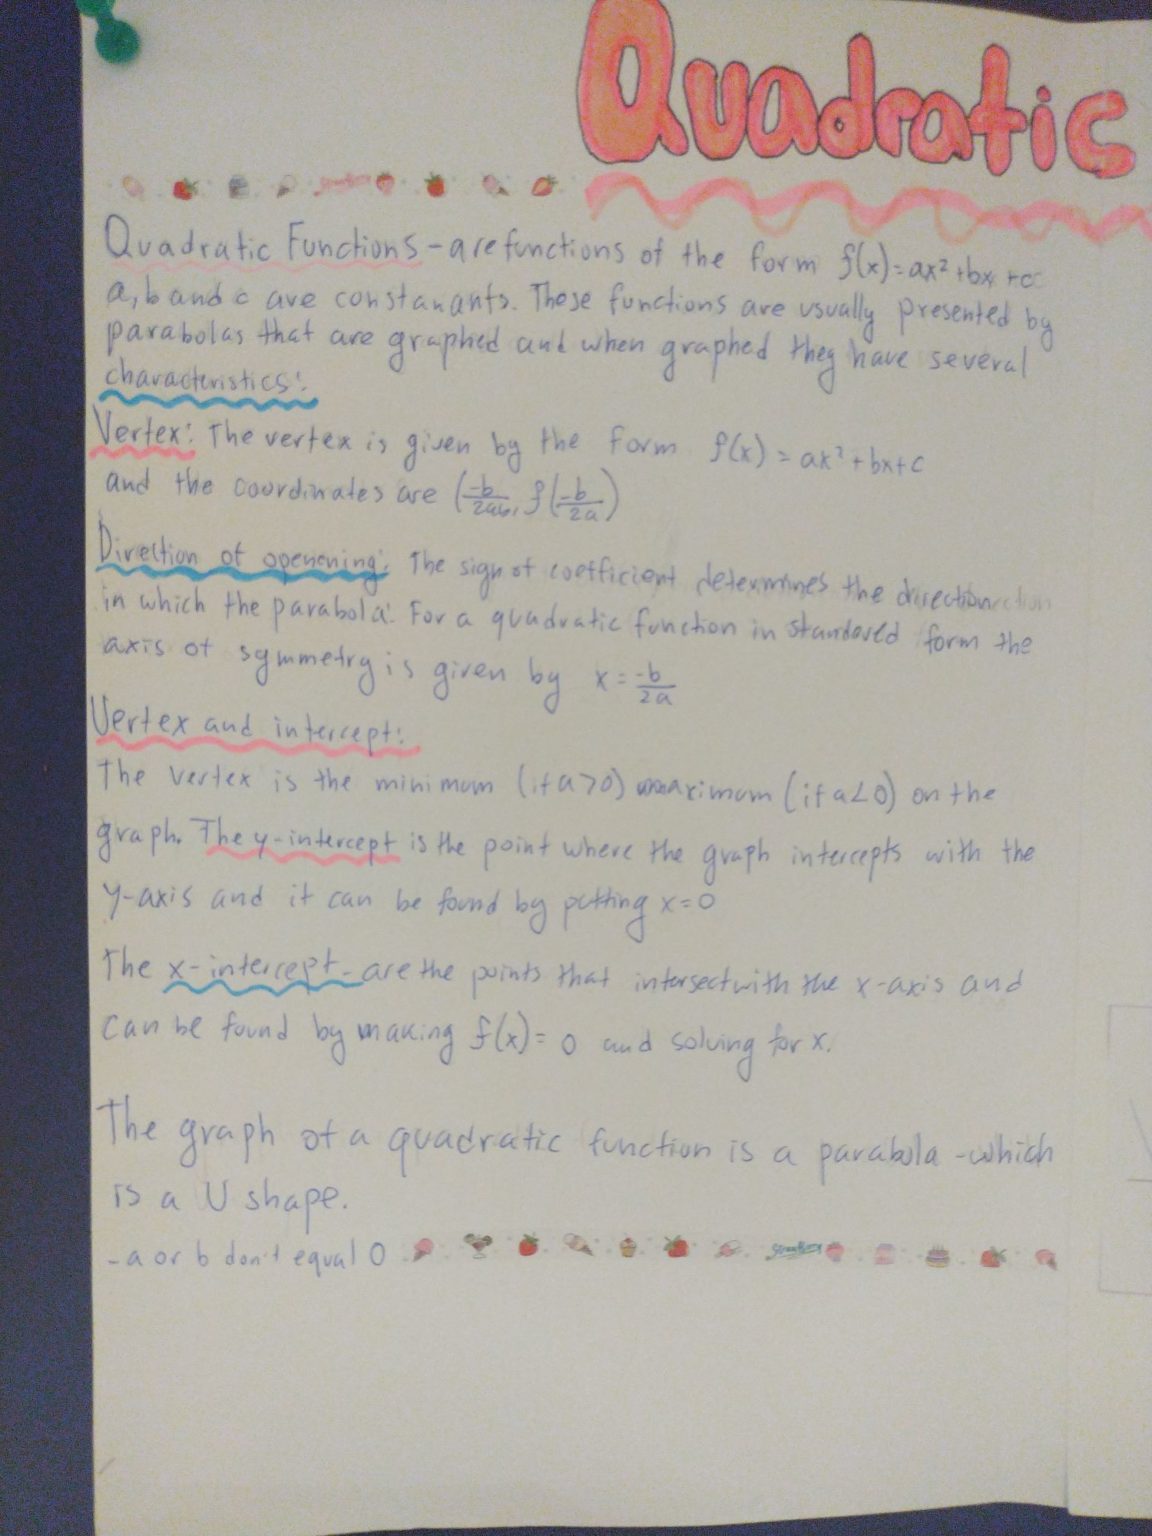 Quadratic
Quadratic Functions - are functions of the form f(x)=ax²+bx+c
a, b and c are constanants. These functions are usually presented by
parabolas that are graphed and when graphed they have several
characteristics:
Vertex: The vertex is given by the form f(x) = ax²+bx+c
and the coordinates are (-b/2a, f(-b/2a)
Direction of openening: The sign of coefficient determines the direction
in which the parabola: For a quadratic function in standered form the
axis of symmetry is given by x = -b/2a
Vertex and intercept:
The vertex is the minimum (if a>0) maximum (if a<0) on the
graph. The y-intercept is the point where the graph intercepts with the
y-axis and it can be found by putting x=0
The x-intercept - are the points that intersect with the x-axis and
can be found by making f(x)= 0 and solving for x.
The graph of a quadratic function is a parabola - which
is a U shape.
- a or b don't equal 0